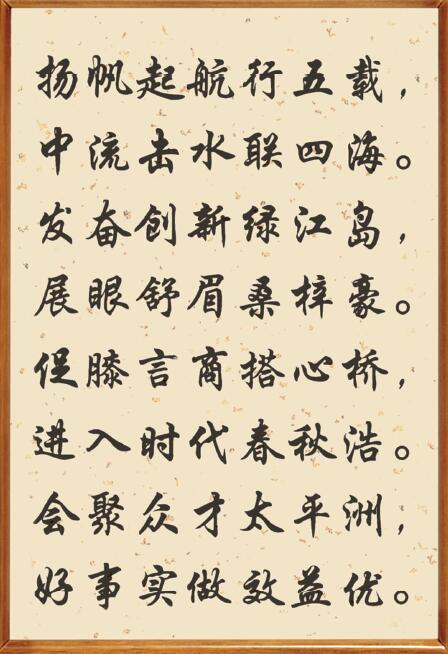 扬帆起航行五载，
中流击水联四海。
发奋创新绿江岛，
展眼舒眉桑梓豪。
促膝言商搭心桥，
进入时代春秋浩。
会聚众才太平洲，
好事实做效益优。